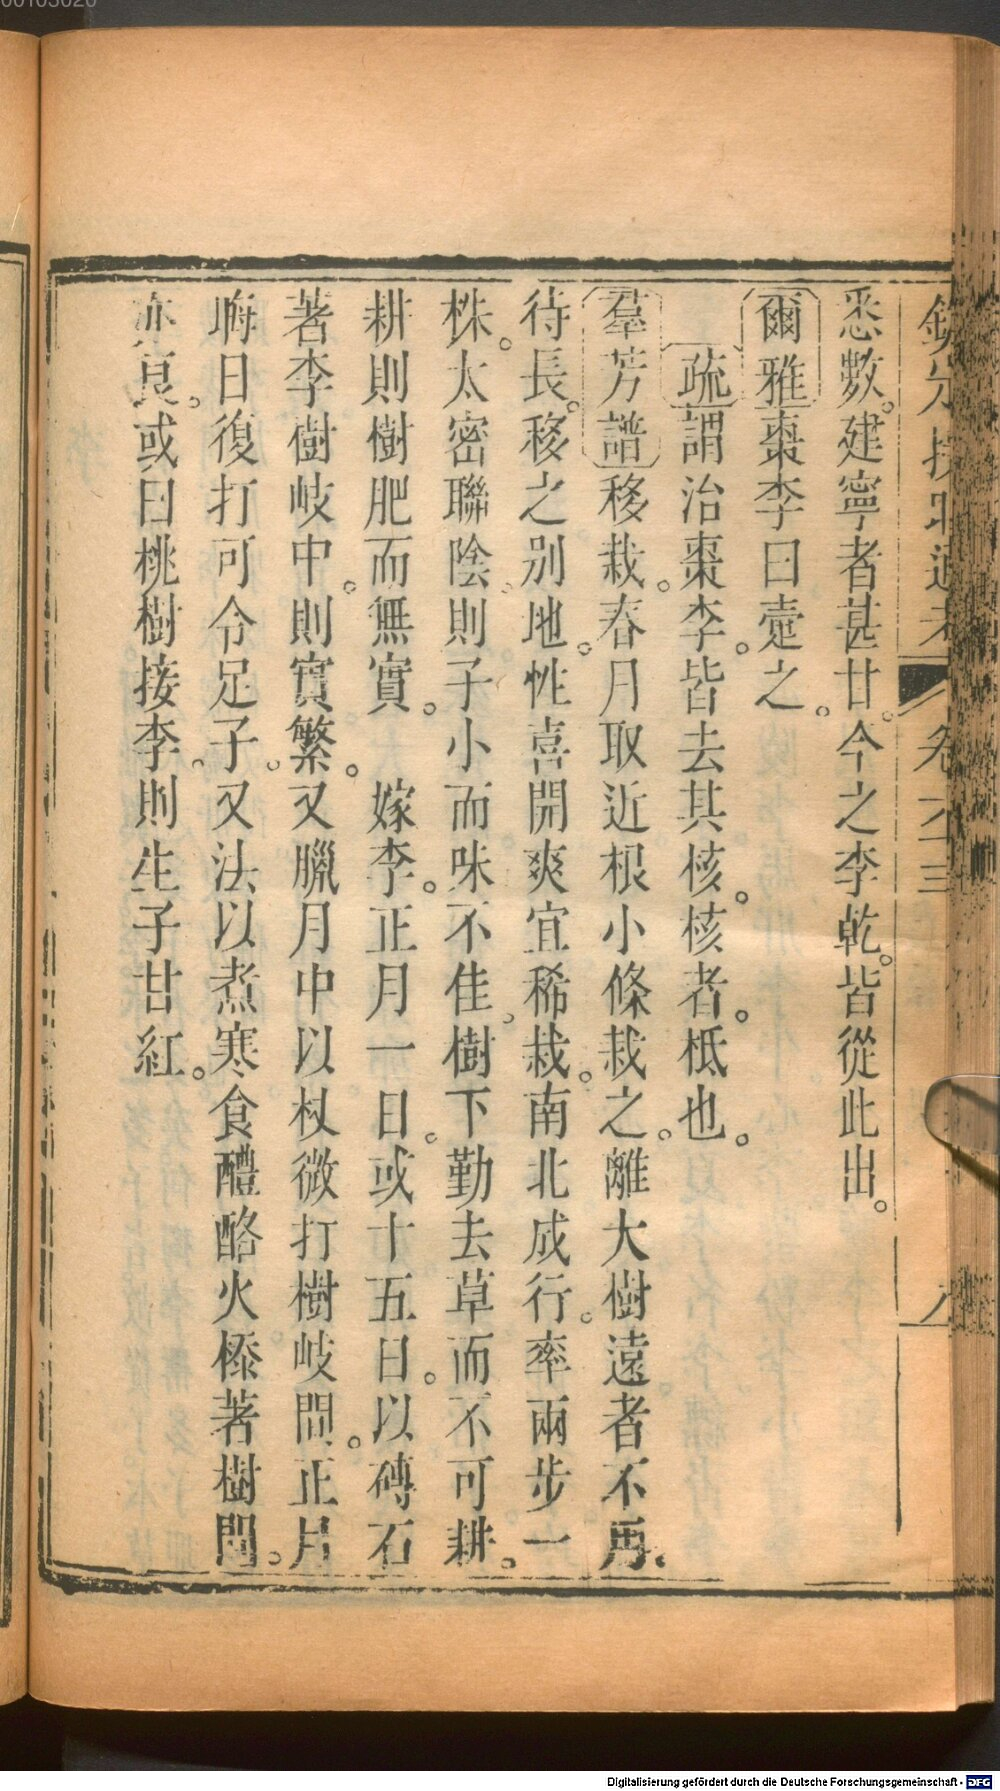 欽定授時通考 卷六十三
悉數。建寧者甚甘。今之李乾。皆從此出。
爾雅棗李曰疐之。
疏謂治棗李。皆去其核。核者。柢也。
羣芳譜移栽。春月取近根小條栽之。離大樹遠者不再。
待長。移之別地。性喜開爽宜稀栽。南北成行。率兩步一
株。太密聯陰。則子小而味不佳。樹下勤去草而不可耕。
耕則樹肥而無實。 嫁李。正月一日。或十五日。以磚石
著李樹岐中。則實繁。又臘月中以杖微打樹岐間。正月
晦日復打可令足子。又法以煮寒食醴酪火㮇著樹間。
亦良。或曰桃樹接李。則生子甘紅。
Digitalisierung gefördert durch die Deutsche Forschungsgemeinschaft - DFG